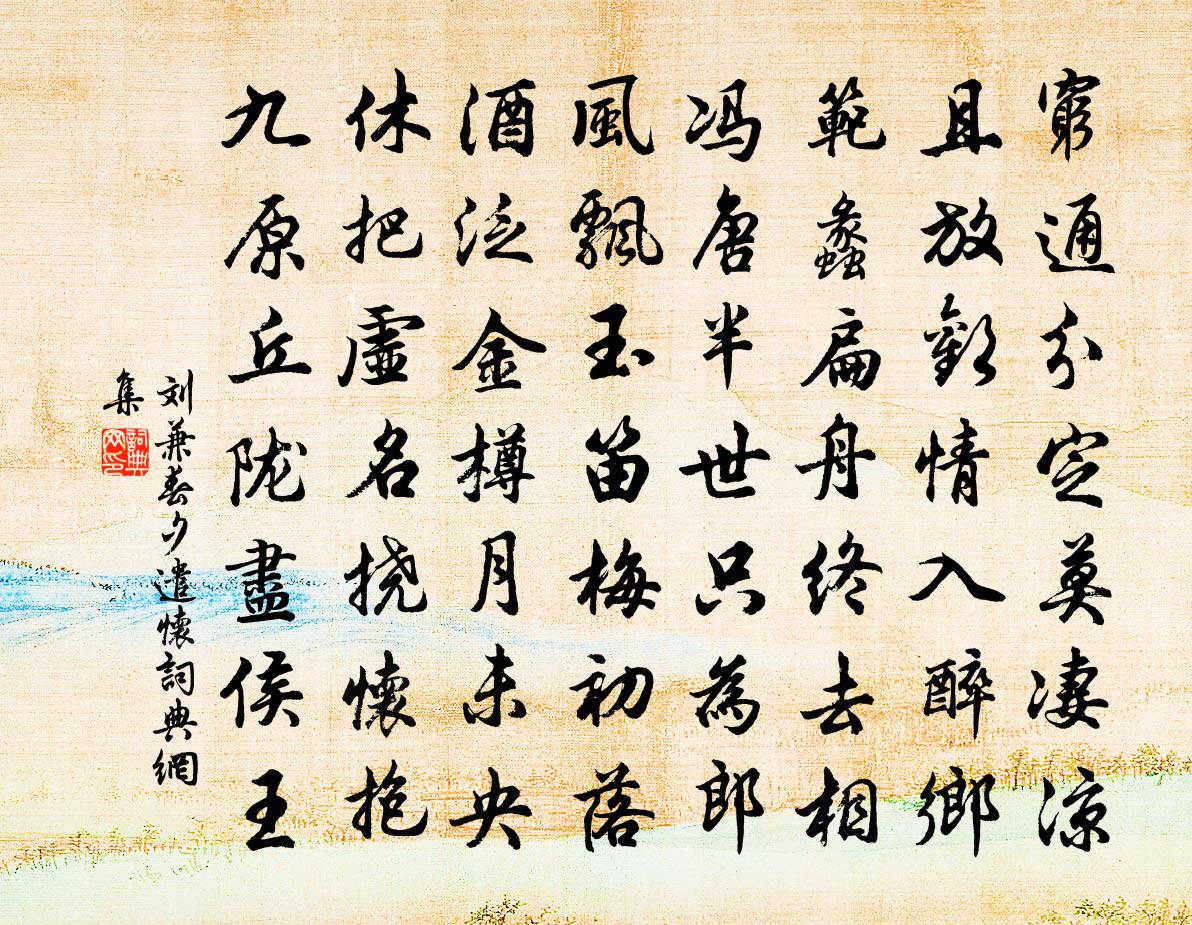 窮通分定莫淒涼
且放歡情入醉鄉
範蠡扁舟終去相
冯唐半世只為郎
風飄玉笛梅初落
酒泛金樽月未央
休把虛名挠懷抱
九原丘陇盡侯王
刘兼春夕遣懷詞典網
集
詞典
网印